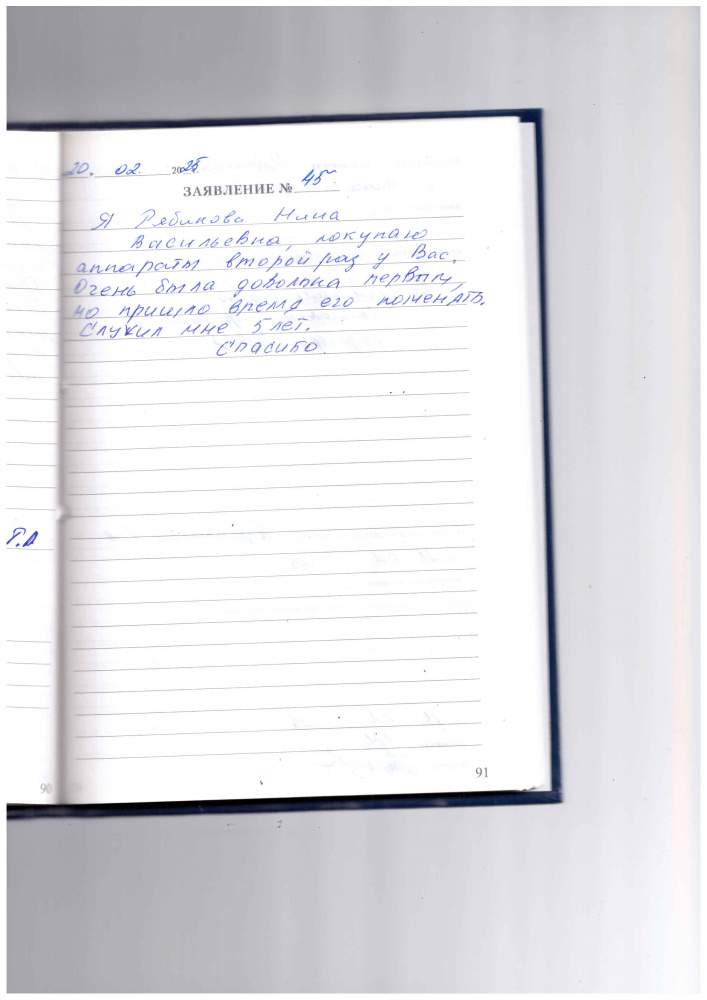 20. 02. 2025.
ЗАЯВЛЕНИЕ № 45
Я Рябикова Нина
Васильевна, покупаю
аппараты второй раз у Вас.
Очень была довольна первым,
но пришло время его поменять.
Служил мне 5 лет.
Спасибо
Т.А
90
91